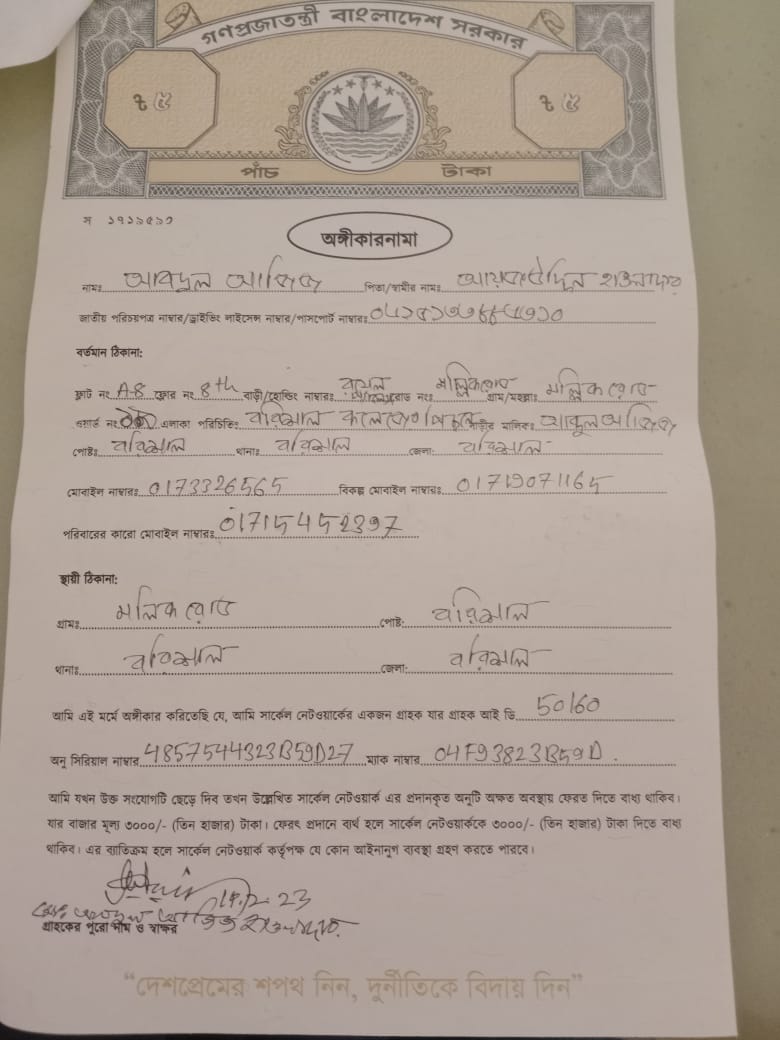 গণপ্রজাতন্ত্রী বাংলাদেশ সরকার
৳ ৫ ৳ ৫
পাঁচ টাকা
অঙ্গীকারনামা
নামঃ আবদুল আজিজ পিতা/স্বামীর নামঃ হাওলাদার
জাতীয় পরিচয়পত্র নাম্বার/ড্রাইভিং লাইসেন্স নাম্বার/পাসপোর্ট নাম্বারঃ
বর্তমান ঠিকানা:
ফ্লাট নং A-8 ফ্লোর নং 8th বাড়ী/হোল্ডিং নাম্বারঃ রোড নংঃ মল্লিক রোড গ্রাম/মহল্লাঃ মল্লিক রোড
ওয়ার্ড নং এলাকা পরিচিতিঃ বরিশাল বাড়ীর মালিকঃ
পোষ্টঃ বরিশাল থানাঃ বরিশাল জেলা: বরিশাল
মোবাইল নাম্বারঃ 0173326565 বিকল্প মোবাইল নাম্বারঃ 01719071165
পরিবারের কারো মোবাইল নাম্বারঃ 01715452397
স্থায়ী ঠিকানা:
গ্রামঃ মল্লিক রোড পোষ্ট: বরিশাল
থানাঃ বরিশাল জেলা: বরিশাল
আমি এই মর্মে অঙ্গীকার করিতেছি যে, আমি সার্কেল নেটওয়ার্কের একজন গ্রাহক যার গ্রাহক আই ডি 50160
অনু সিরিয়াল নাম্বার 4857544323B59D27 ম্যাক নাম্বার 04F93823B59D.
আমি যখন উক্ত সংযোগটি ছেড়ে দিব তখন উল্লেখিত সার্কেল নেটওয়ার্ক এর প্রদানকৃত অনুটি অক্ষত অবস্থায় ফেরত দিতে বাধ্য থাকিব।
যার বাজার মূল্য ৩০০০/- (তিন হাজার) টাকা। ফেরৎ প্রদানে ব্যর্থ হলে সার্কেল নেটওয়ার্ককে ৩০০০/- (তিন হাজার) টাকা দিতে বাধ্য
থাকিব। এর ব্যতিক্রম হলে সার্কেল নেটওয়ার্ক কর্তৃপক্ষ যে কোন আইনানুগ ব্যবস্থা গ্রহণ করতে পারবে।
গ্রাহকের পুরো নাম ও স্বাক্ষর
“দেশপ্রেমের শপথ নিন, দুর্নীতিকে বিদায় দিন”